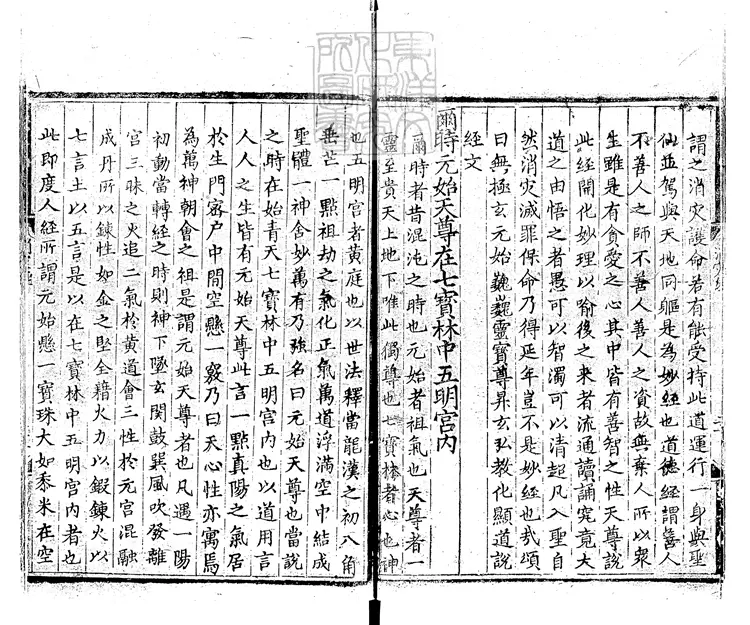 謂之消灾護命若有能受持此道運行一身與聖
仙並駕與天地同軀是為妙經也道德經謂善人
不善人之師不善人善人之資故無棄人所以衆
生雖是有貪愛之心其中皆有善智之性天尊說
此經開化妙理以喻後之來者流通讀誦究竟大
道之由悟之者愚可以智濁可以清起凡入聖自
然消灾滅罪保命乃得延年豈不是妙經也哉頌
曰無極玄元始巍巍靈寶尊昇玄弘教化顯道說
經文
爾時元始天尊在七寳林中五明宫内
爾時者昔混沌之時也元始者祖氣也天尊者一
靈至貴天上地下唯此獨尊也七寳林者心也神
也五明宫者黄庭也以世法釋當龍漢之初八角
垂芒一㸃祖劫之氣化正氣萬道浮滿空中結成
聖體一神含妙萬有乃強名曰元始天尊也當說
之時在始青天七寳林中五明宫内也以道用言
人人之生皆有元始天尊此言一㸃真陽之氣居
於生門宻户中間空懸一竅乃曰天心性亦寓焉
為萬神朝會之祖是謂元始天尊者也凡遇一陽
初動當轉經之時則神下墜玄関鼓巽風吹發離
宫三昧之火追二氣於黄道會三性於元宫混融
成丹所以鍊性如金之堅全藉火力以鍛鍊火以
七言土以五言是以在七寳林中五明宫内者也
此即度人經所謂元始懸一寳珠大如黍米在空